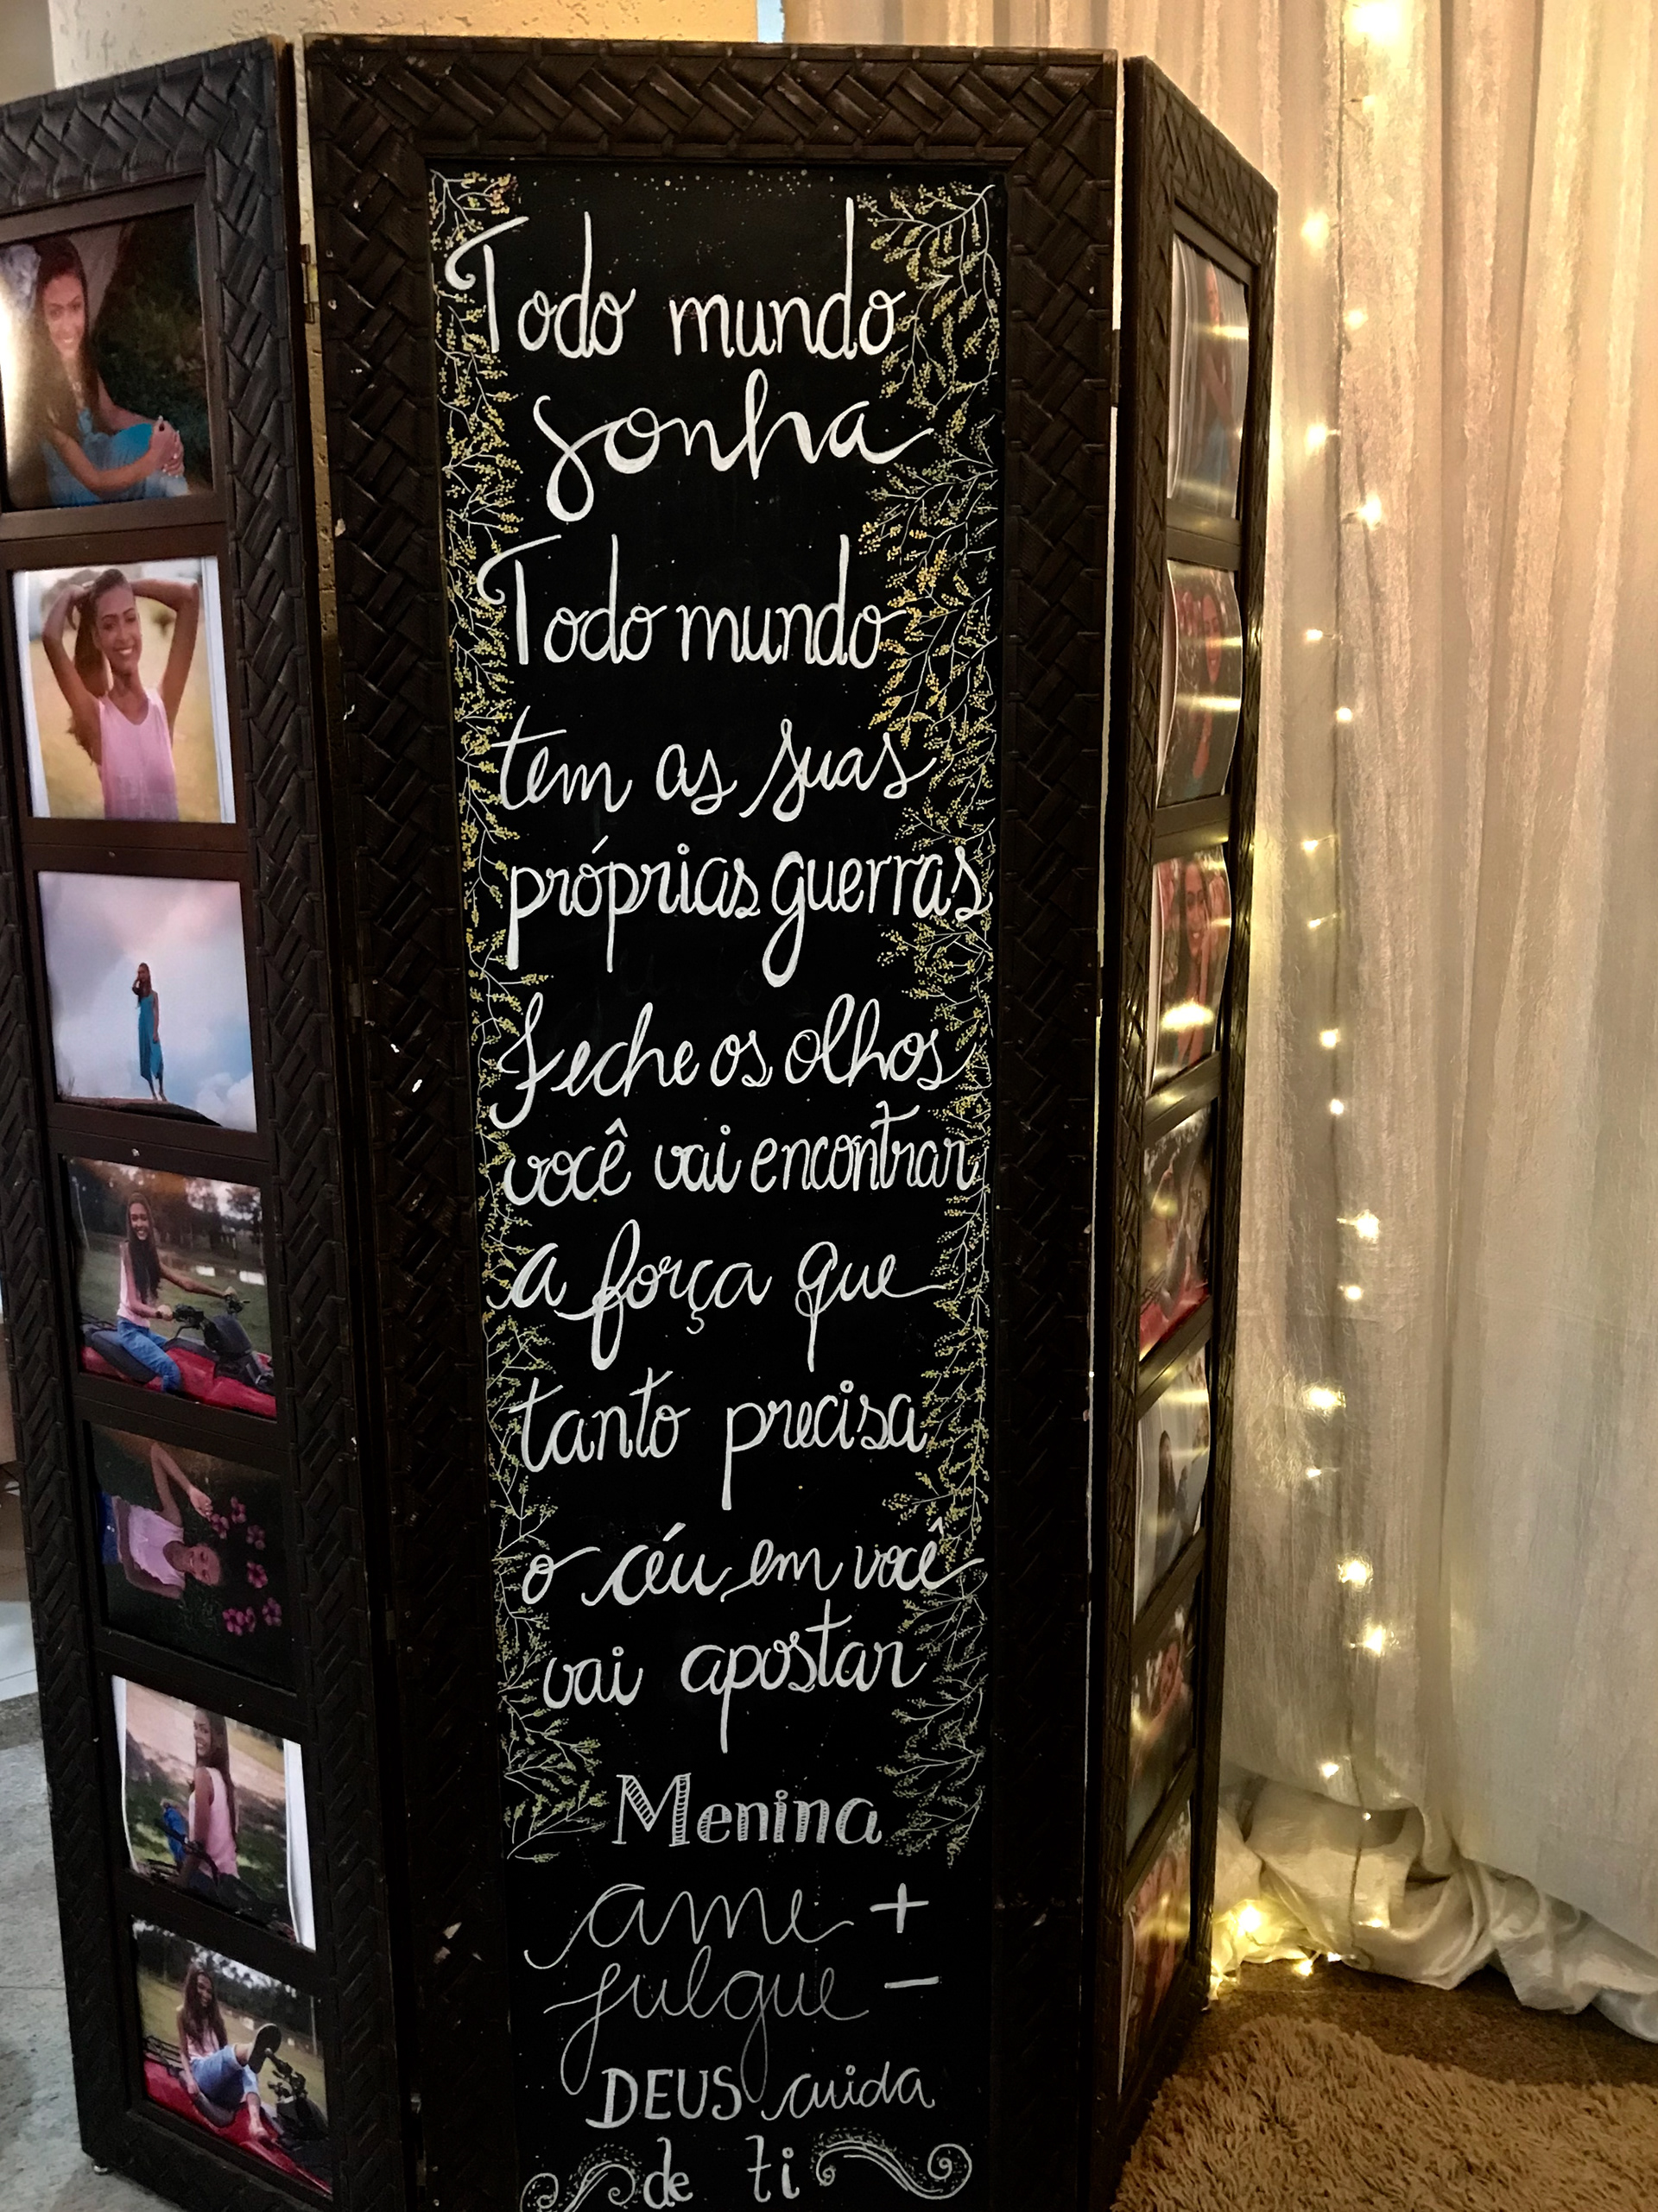 Todo mundo
sonha
Todo mundo
tem as suas
próprias guerras
Feche os olhos
você vai encontrar
a força que
tanto precisa
o céu em você
vai apostar
Menina
ame +
julgue -
DEUS cuida
de ti